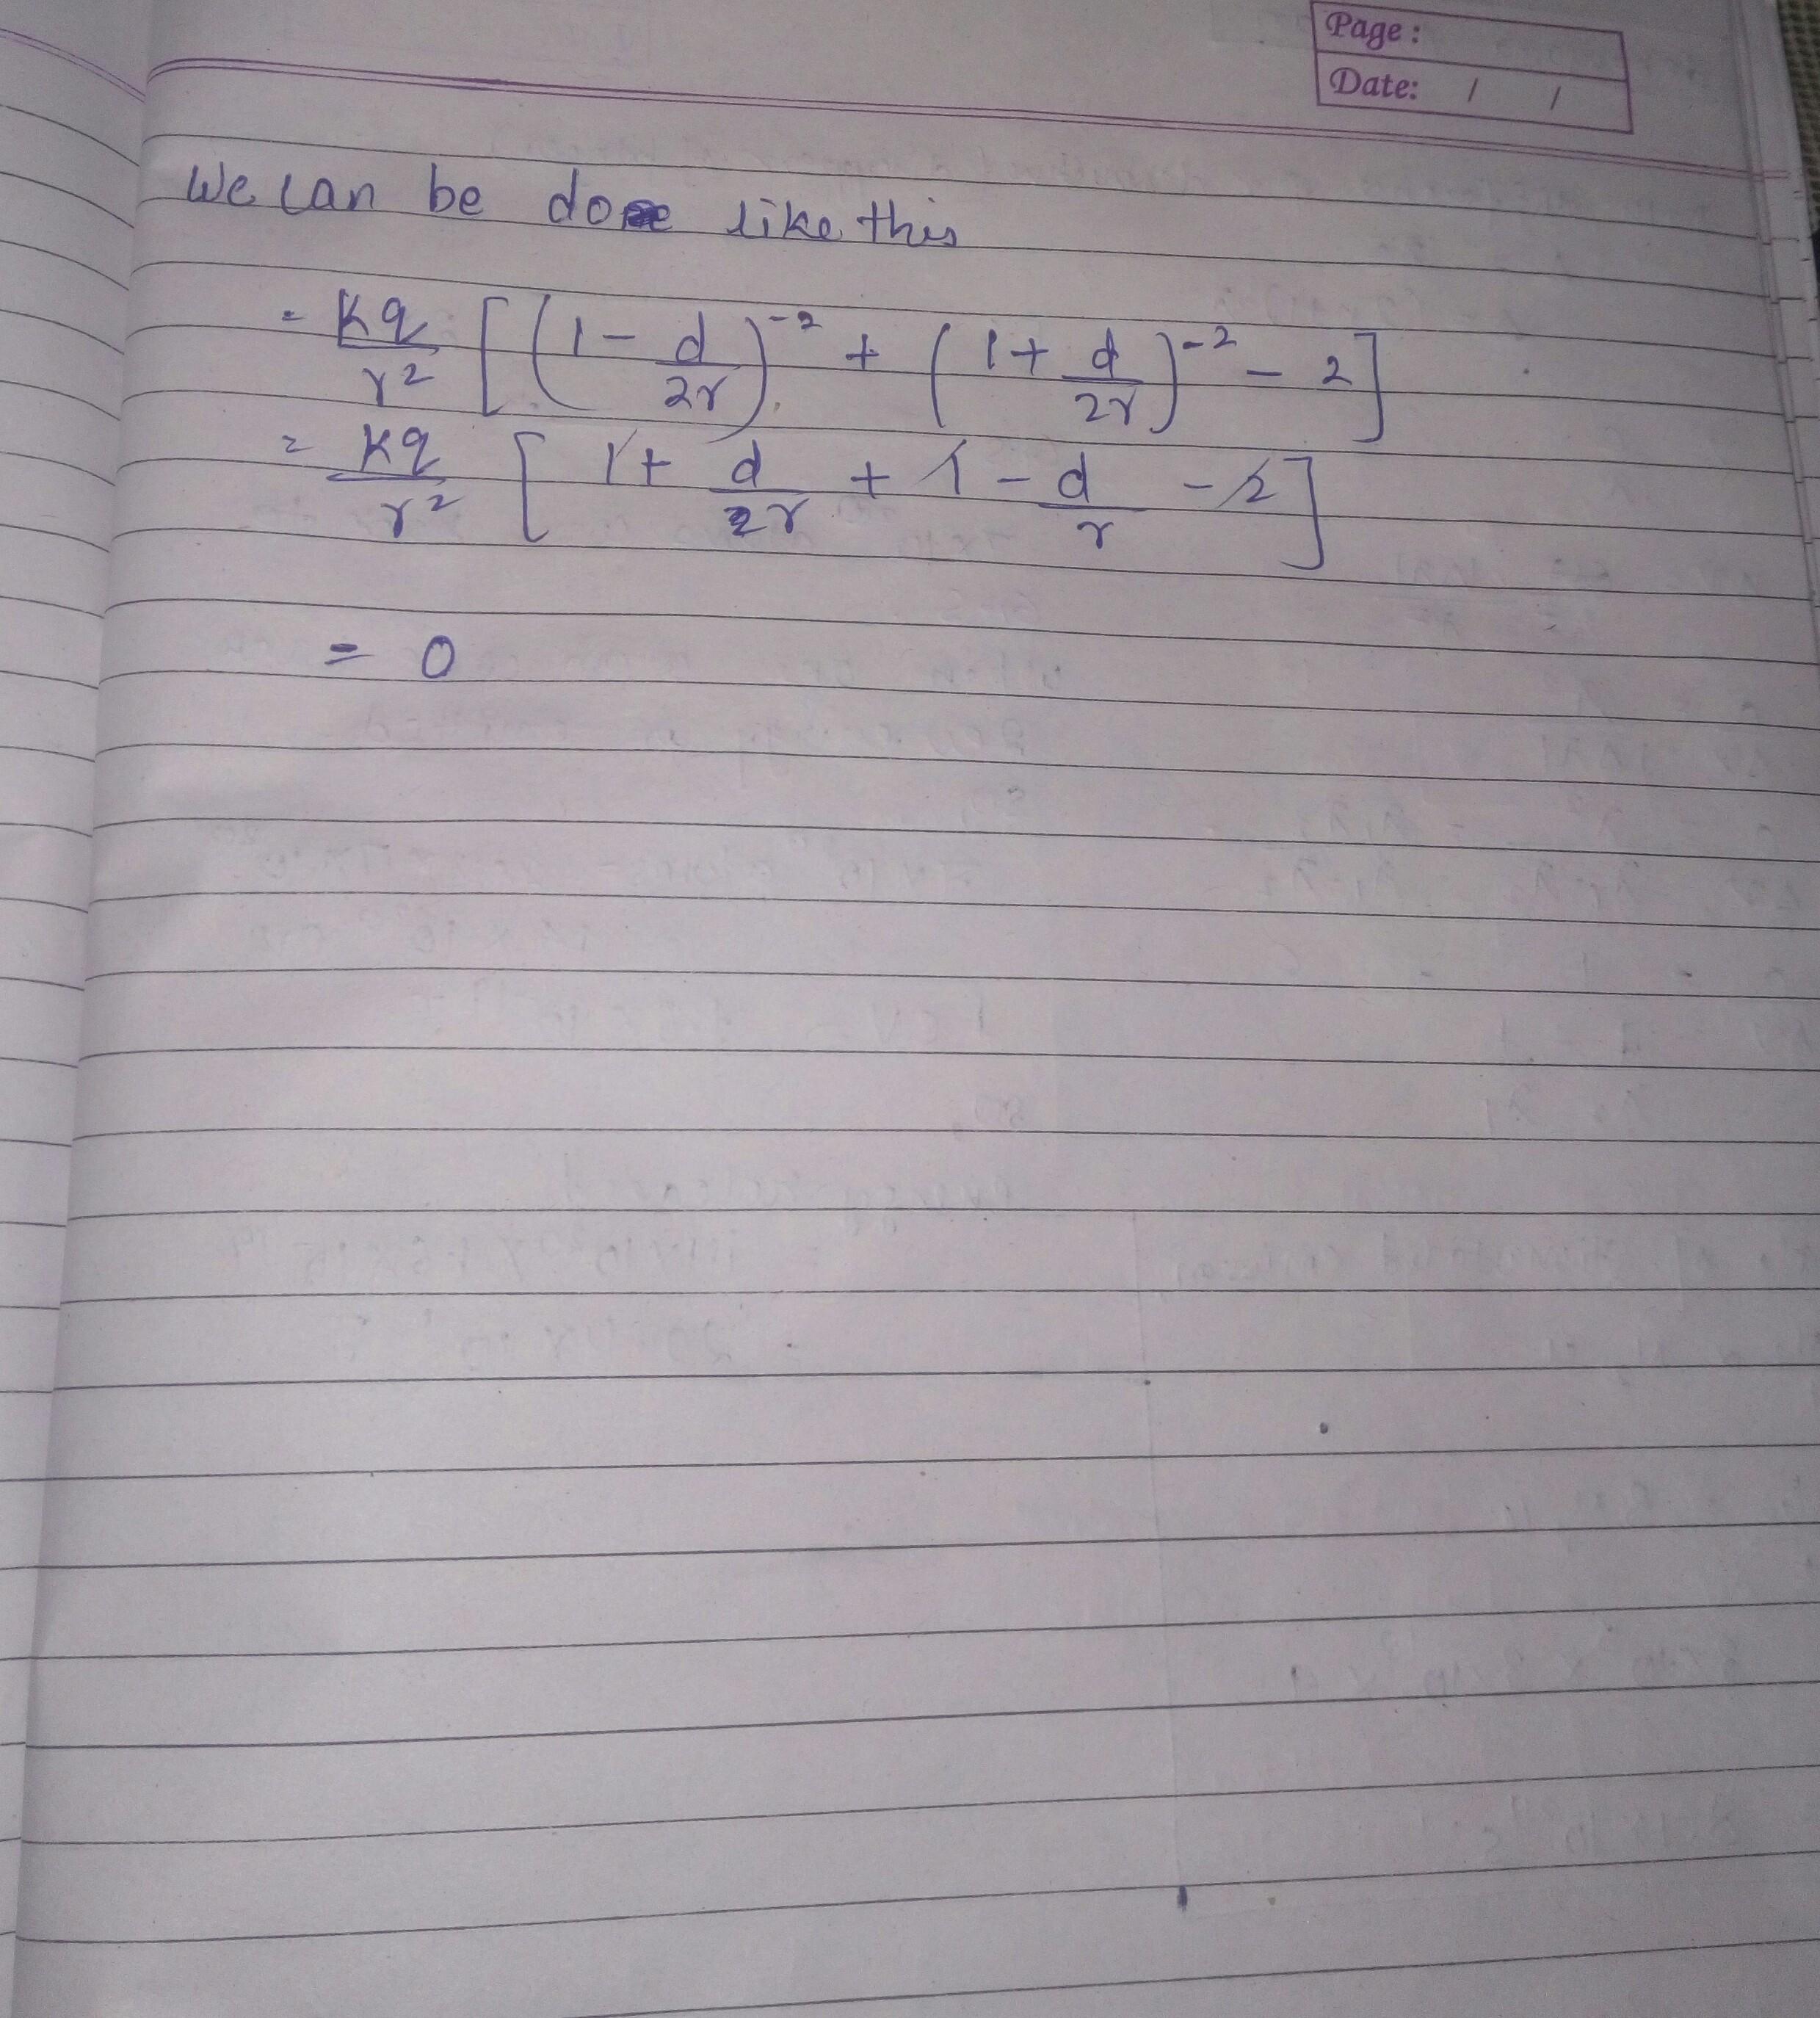 Page:
Date: / /
We can be done like this
= kq/r² [(1 - d/2r)⁻² + (1 + d/2r)⁻² - 2]
= kq/r² [1 + d/2r + 1 - d/r - 2]
= 0